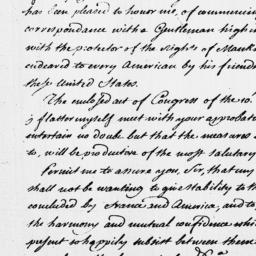 has been pleased to honor me, of commencing
correspondance with a Gentleman high in
with the protector of the Rights of Mank
endeared to every American by his friends
these United States.
The enclosed act of Congress of the 10.
I flatter myself meet with your approbat
entertain no doubt but that the measures
to, will be productive of the most salutary
Permit me to assure you, Sir, that my
shall not be wanting to give stability to th
concluded by France and America, and to
the harmony and mutual confidence whi
present so happily subsist between them